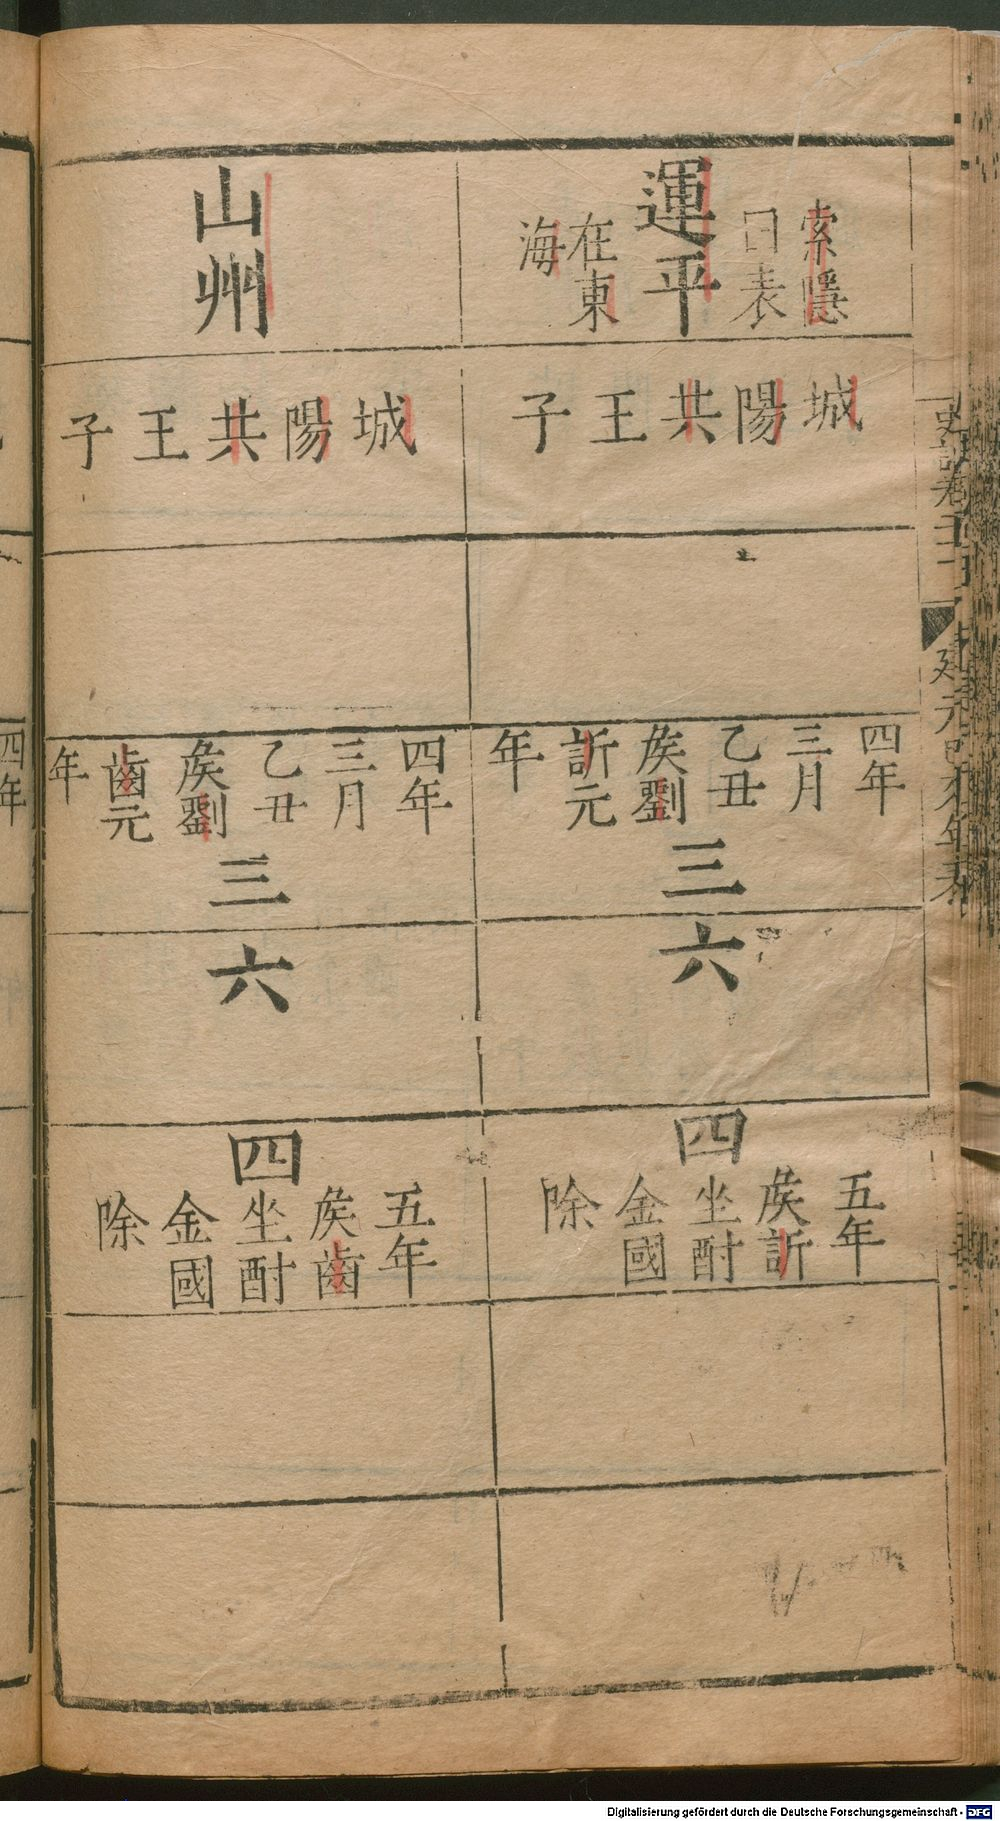 運平
索隱
曰表
在東
海
城陽共王子
四年
三月
乙丑
矦劉
訢元
年
三
六
四
五年
矦訢
坐酎
金國
除
山州
城陽共王子
四年
三月
乙丑
矦劉
齒元
年
三
六
四
五年
矦齒
坐酎
金國
除
史記卷
四年
Digitalisierung gefördert durch die Deutsche Forschungsgemeinschaft - DFG